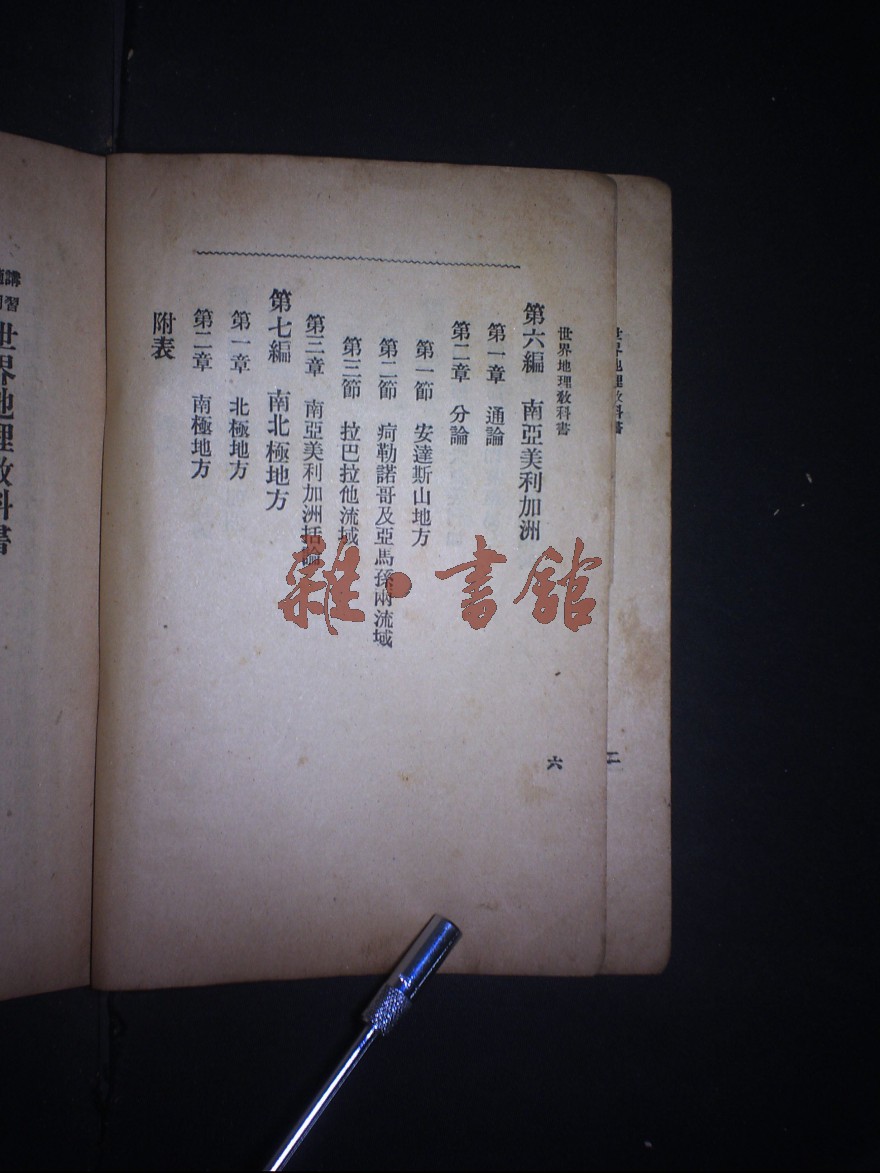 世界地理教科書
第六編　南亞美利加洲
第一章　通論
第二章　分論
第一節　安達斯山地方
第二節　疴勒諾哥及亞馬孫兩流域
第三節　拉巴拉他流域
第三章　南亞美利加洲括論
第七編　南北極地方
第一章　北極地方
第二章　南極地方
附表
六
世界地理教科書
二
講
習
世界地理教科書
雜·書館